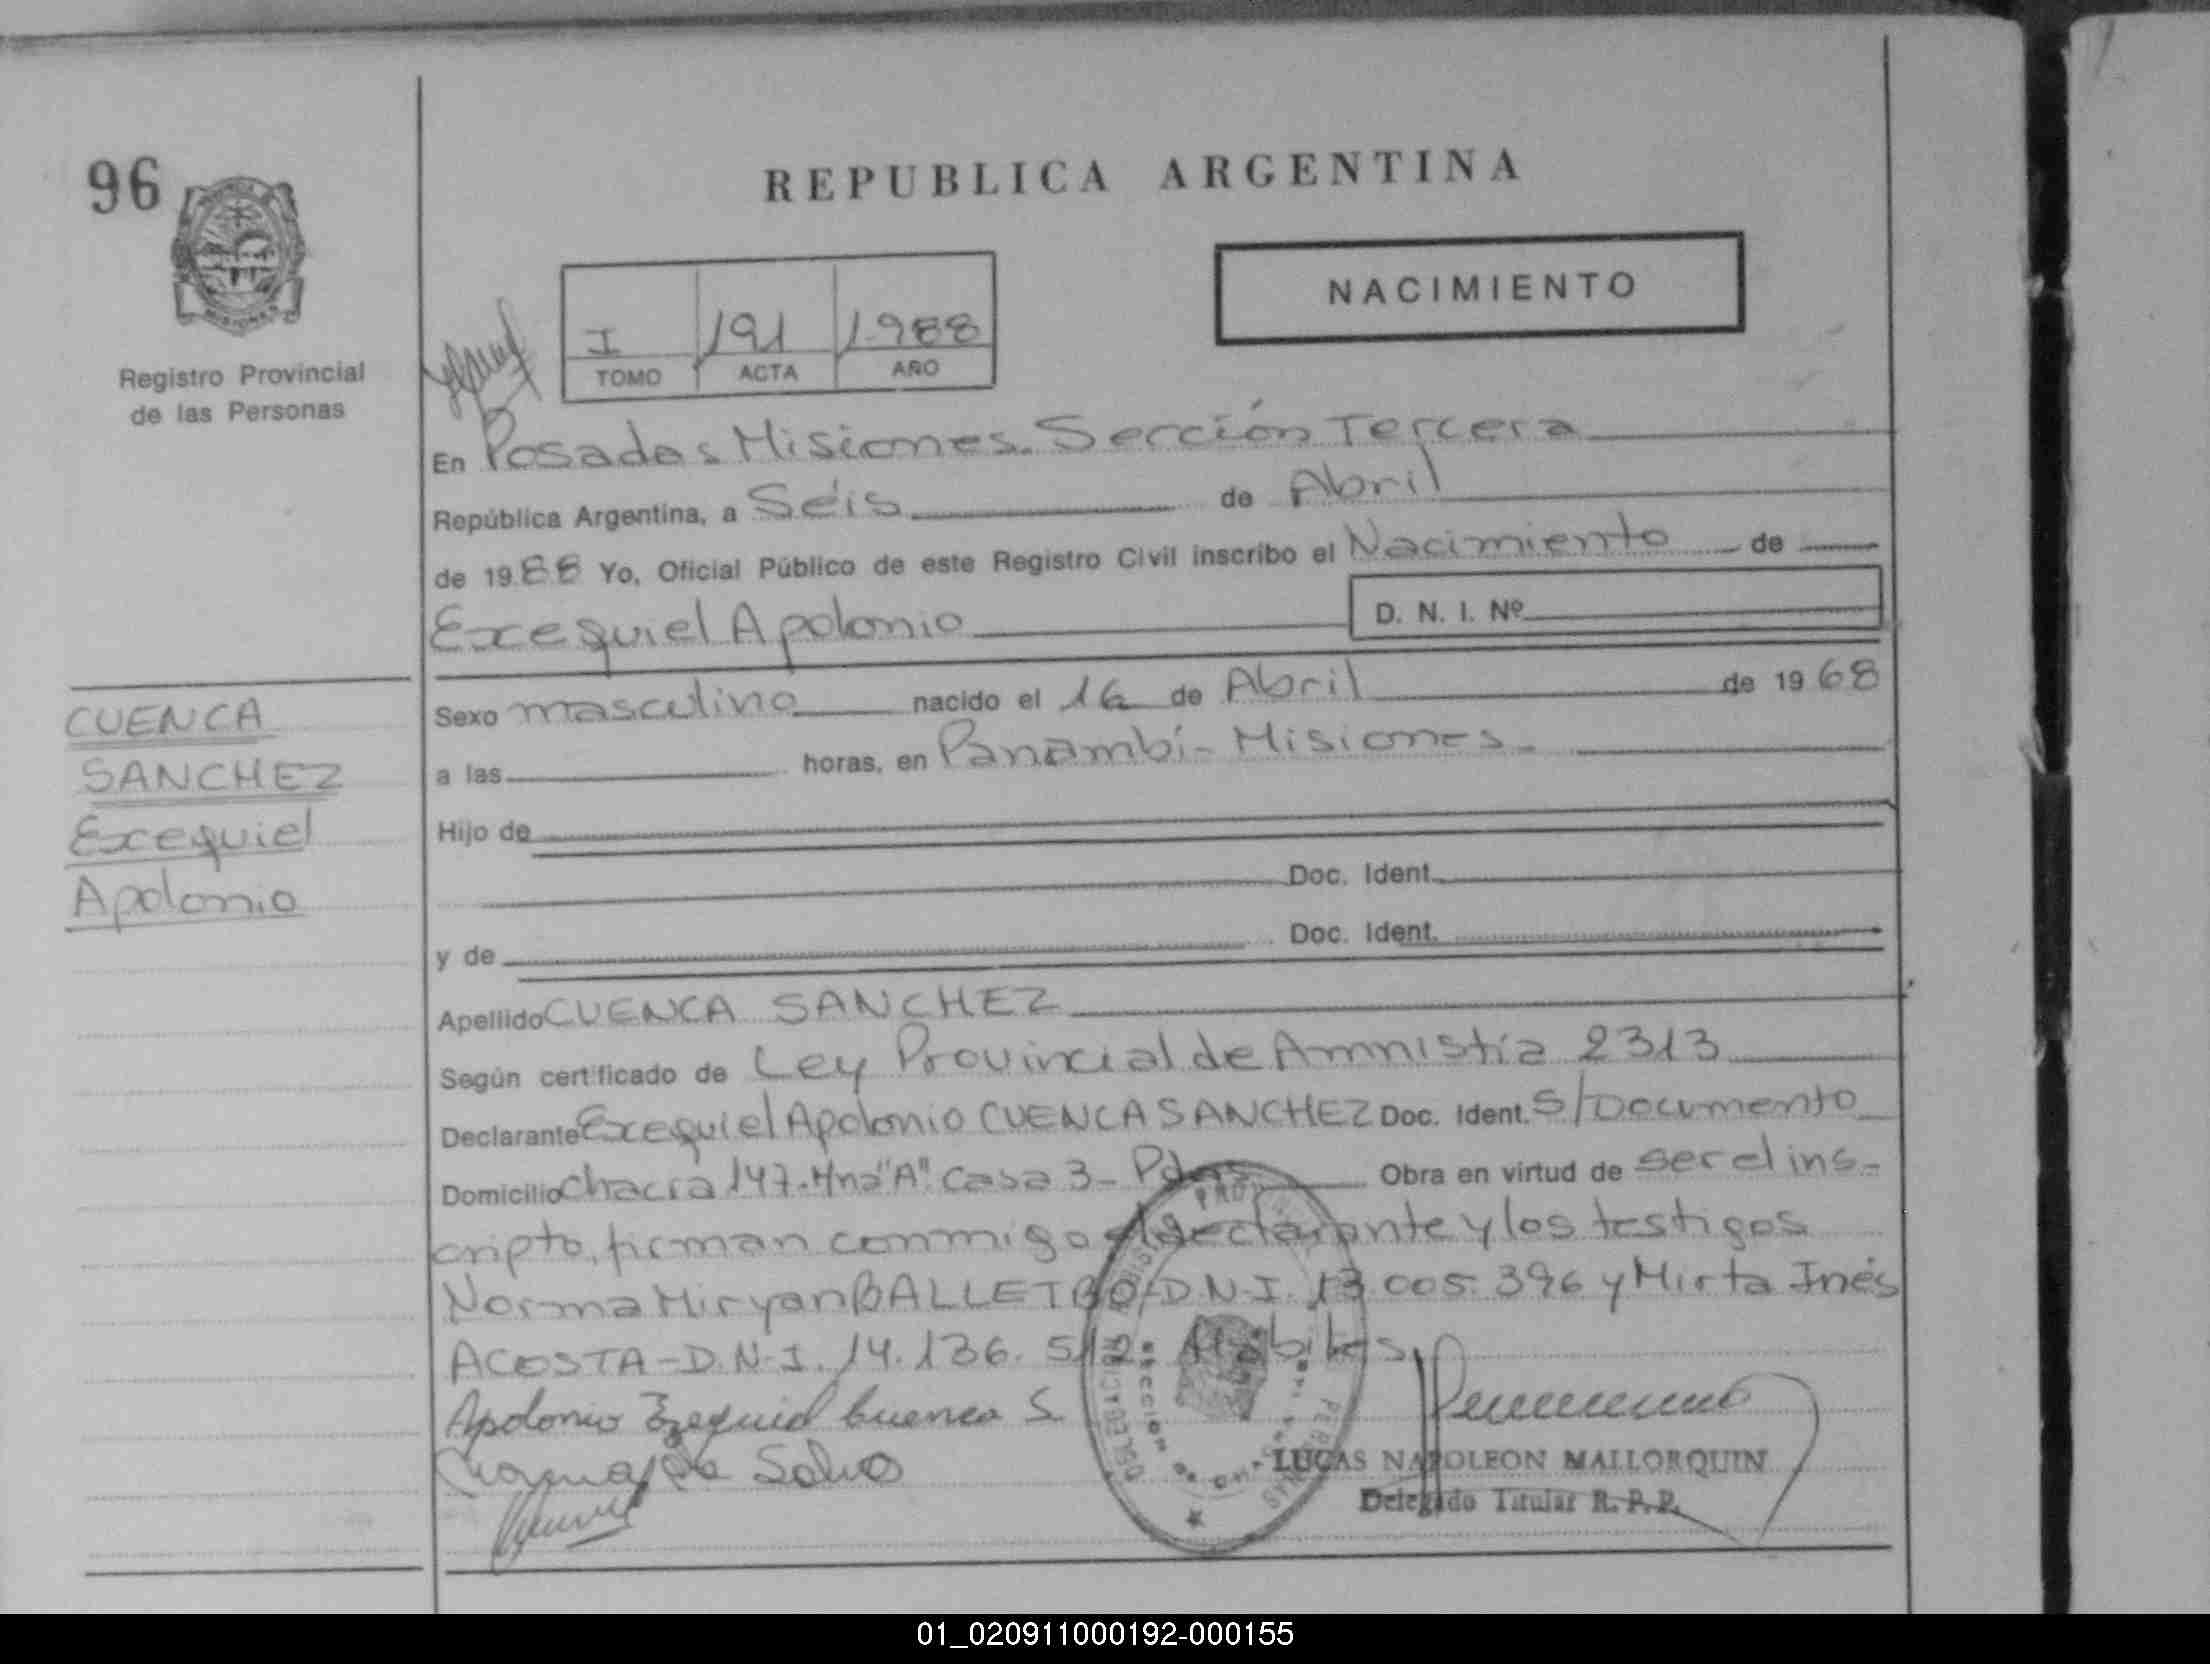 96
REPUBLICA ARGENTINA
NACIMIENTO
I 191 1988
TOMO ACTA AÑO
MISIONES
Registro Provincial
de las Personas
En Posadas Misiones. Sección Tercera
República Argentina, a Séis de Abril
de 1988 Yo, Oficial Público de este Registro Civil inscribo el Nacimiento de
Exequiel Apolonio D. N. I. Nº
Sexo masculino nacido el 16 de Abril de 1968
a las horas, en Panambí - Misiones
Hijo de
Doc. Ident.
y de Doc. Ident.
CUENCA
SANCHEZ
Exequiel
Apolonio
Apellido CUENCA SANCHEZ
Según certificado de Ley Provincial de Amnistía 2313
Declarante Exequiel Apolonio CUENCA SANCHEZ Doc. Ident. S/Documento
Domicilio Chacra 147-Mna "A" Casa 3 - Pdas Obra en virtud de ser el ins-
cripto, firman conmigo el declarante y los testigos
Norma Miryan BALLETBO-D.N.I. 13.005.396 y Mirta Inés
ACOSTA-D.N.I. 14.136. Habiles
Apolonio Ezequiel Cuenca S.
LUCAS NAPOLEON MALLORQUIN
Delegado Titular R.P.P.
01_020911000192-000155